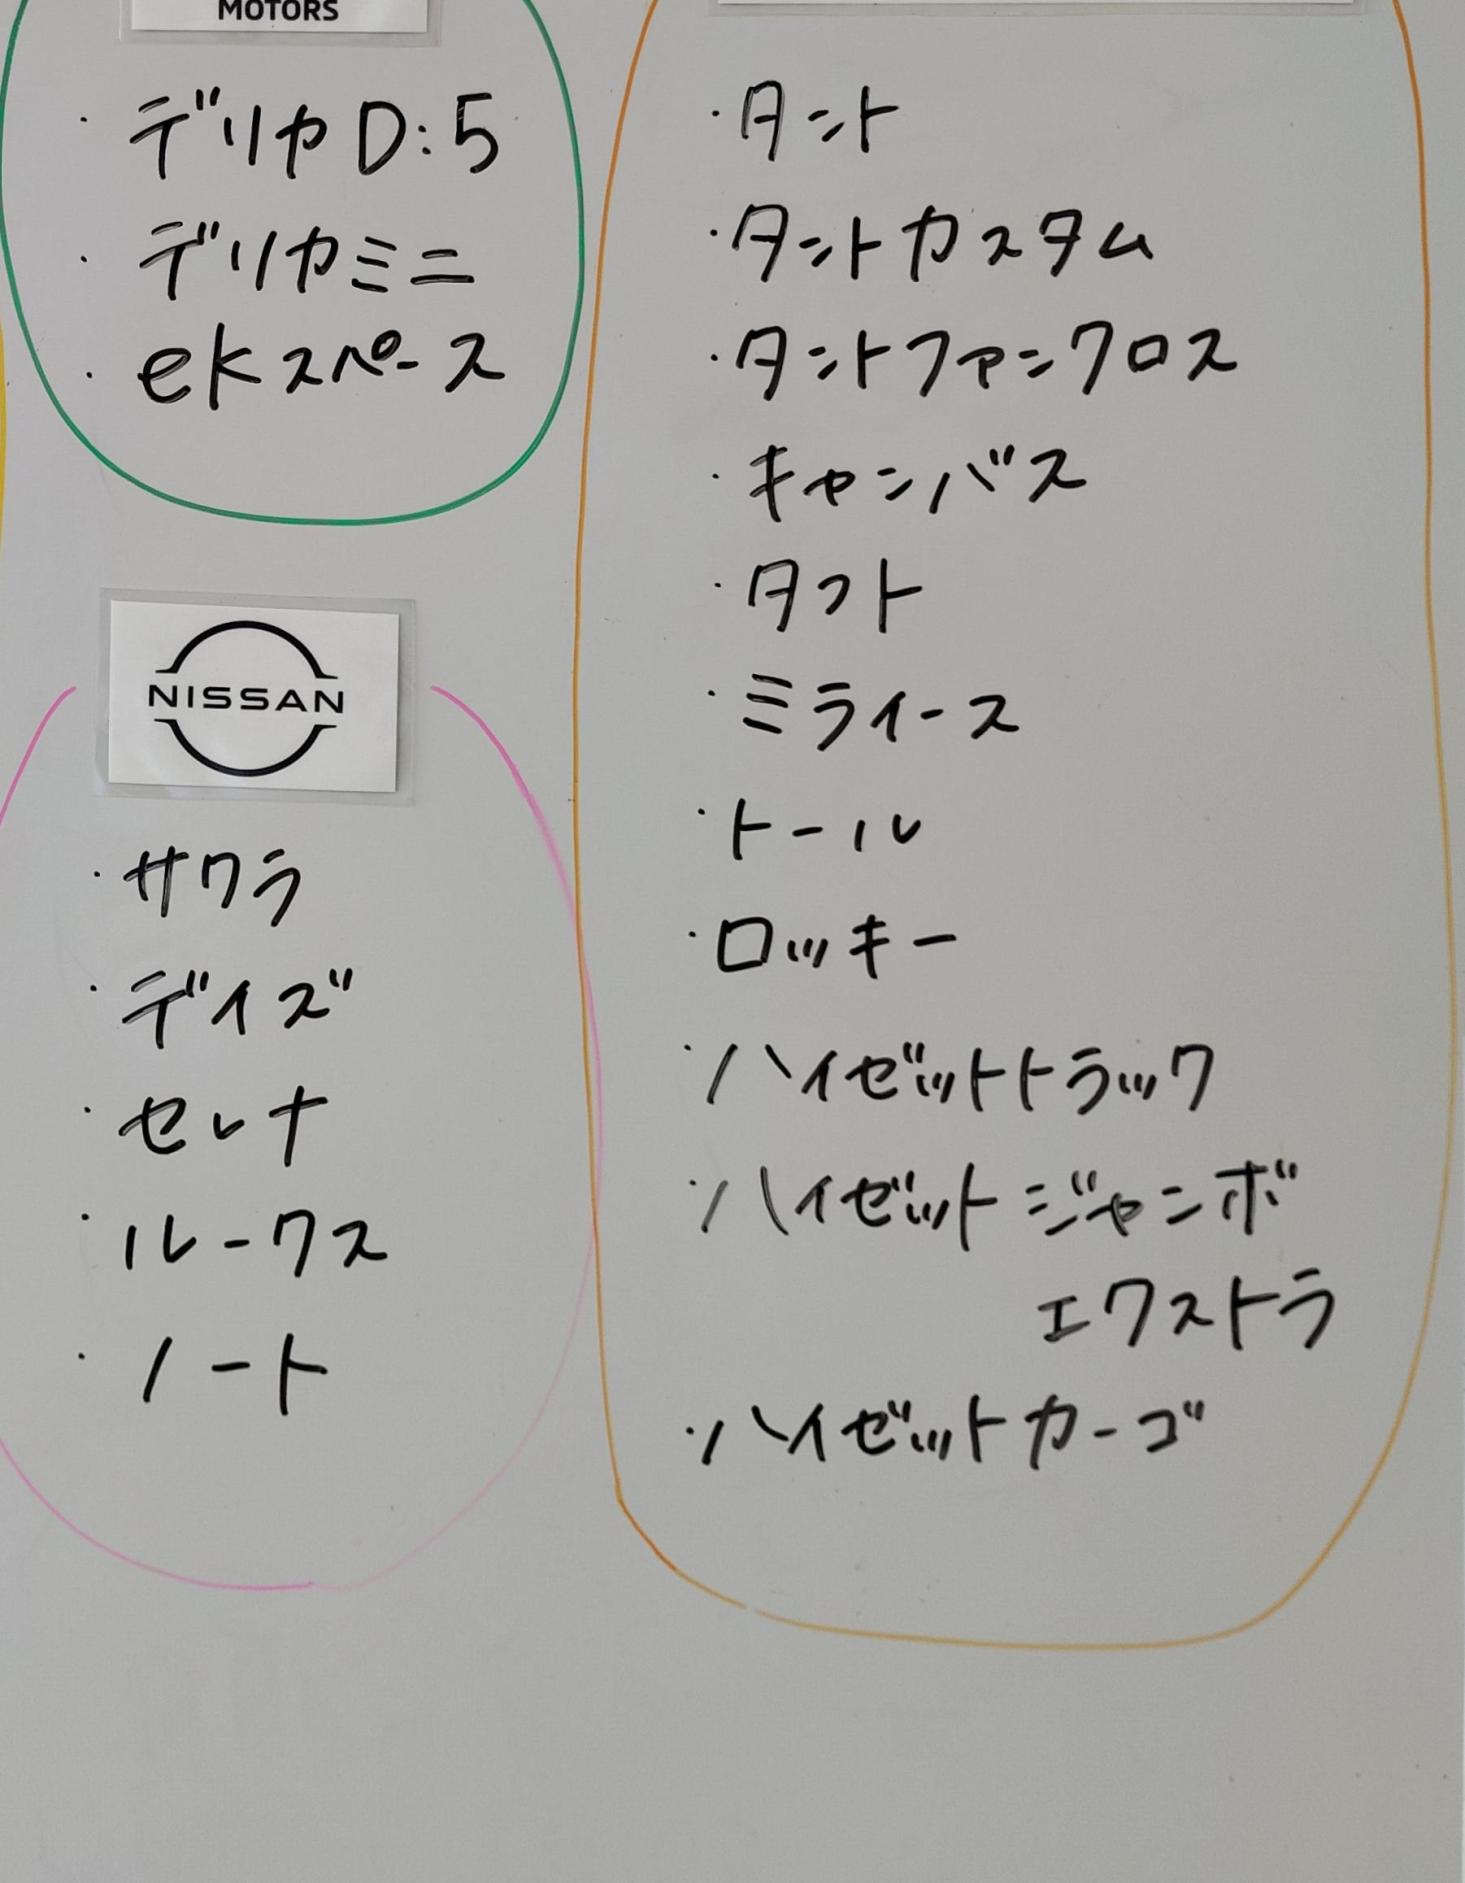 MOTORS
・デリカD:5
・デリカミニ
・ekスペース
NISSAN
・サクラ
・デイズ
・セレナ
・ルークス
・ノート
・タント
・タントカスタム
・タントファンクロス
・キャンバス
・タフト
・ミライース
・トール
・ロッキー
・ハイゼットトラック
・ハイゼットジャンボ
エクストラ
・ハイゼットカーゴ